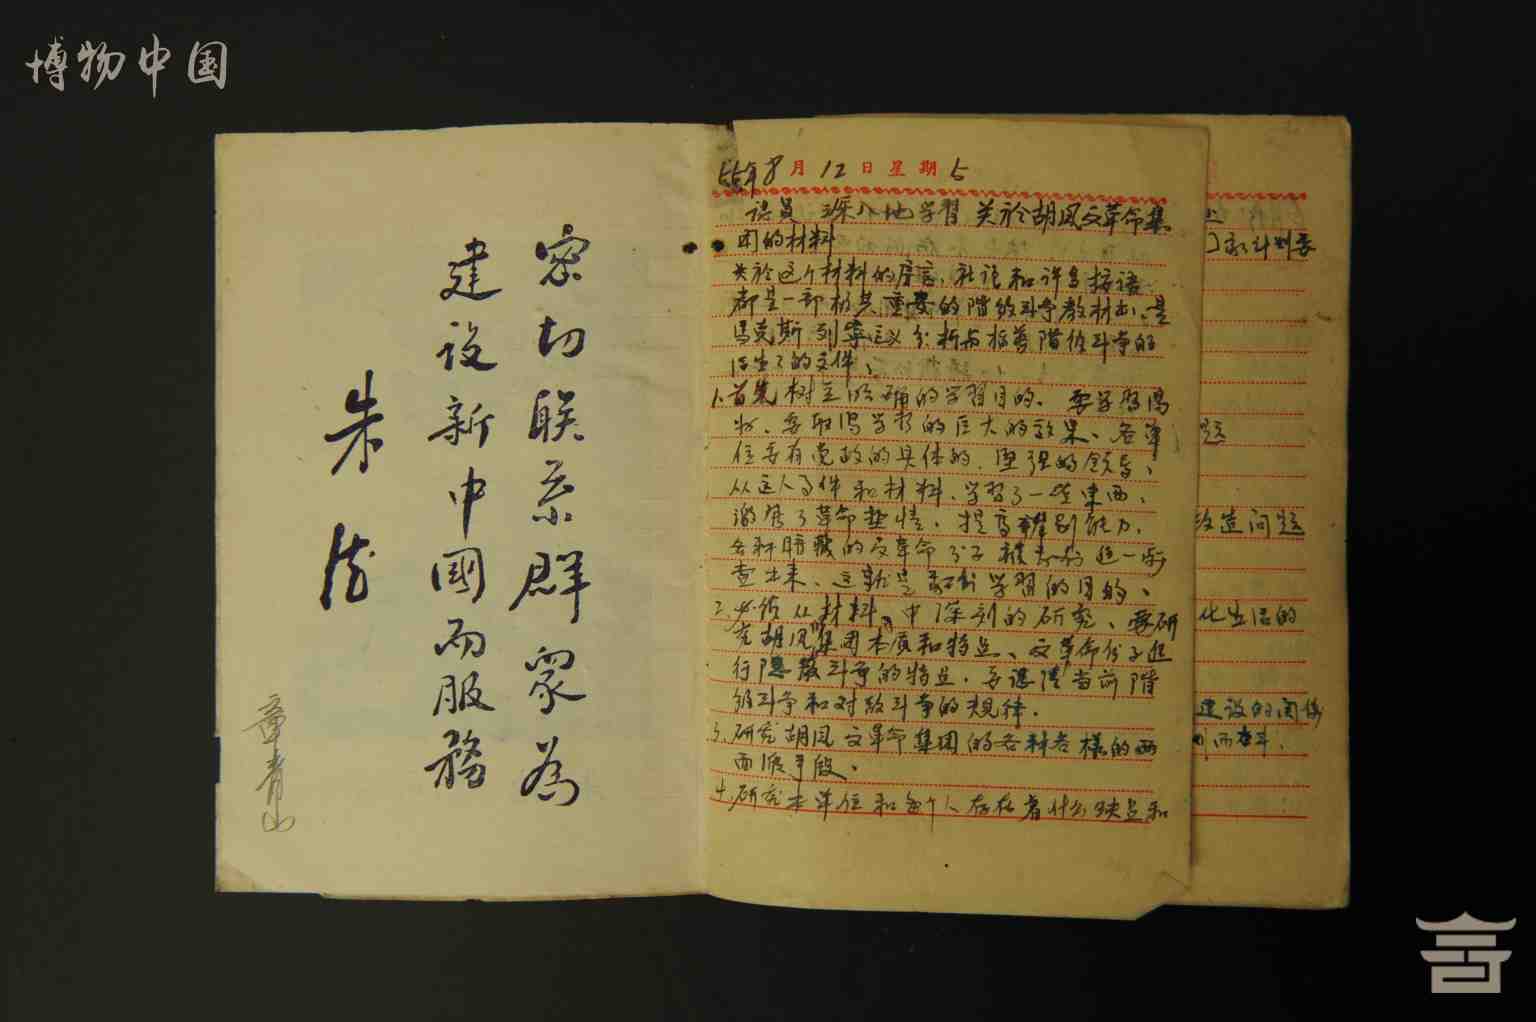 博物中国
密切联系群眾為
建设新中國而服務
朱德
章青山
55年8月12日星期5
认真深入地学習关於胡风反革命集
团的材料
关於这个材料的序言、社论和许多按语
都是一部极其重要的階级斗争教材書、是
馬克斯列寧主义分析与指导階级斗争的
的文件、
1.首先树立明确的学習目的、要学習得
好、要取得学習的巨大的效果、各單
位要有党政的具体的、坚强的领导、
从这个事件和材料、学習了一些東西、
激发了革命热情、提高辨别能力、
各种暗藏的反革命分子被我们進一步
查出来、这就是我们学習的目的、
2.必须从材料中深刻的研究、要研
究胡风集团本质和特点、反革命份子進
行隐蔽斗争的特点、要認清当前階
级斗争和对敌斗争的规律.
3.研究胡风反革命集团的各种各樣的两
面派手段、
4.研究本單位和每个人存在着什么缺点和
家计划委
题
改造问题
化生活的
建设的関係
而奋斗.